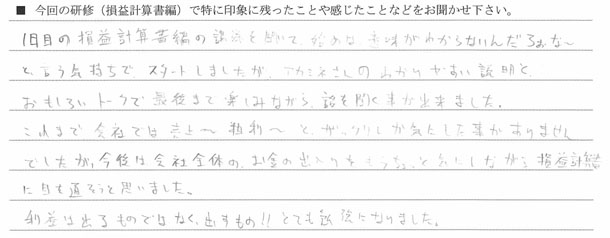 ■ 今回の研修（損益計算書編）で特に印象に残ったことや感じたことなどをお聞かせ下さい。
1日目の損益計算書編の話を聞いて、始めは、意味がわからないんだろぉな〜
と、言う気持ちで、スタートしましたが、アカミネさんのわかりやすい説明と、
おもしろいトークで最後まで楽しみながら、話を聞く事が出来ました。
これまで会社では売上〜粗利〜と、ザックリしか気にした事がありません
でしたが、今後は会社全体の、お金の出入りをもうちょっと気にしながら損益計算
に目を通そうと思いました。
利益は出るものではなく、出すもの!!とても勉強になりました。